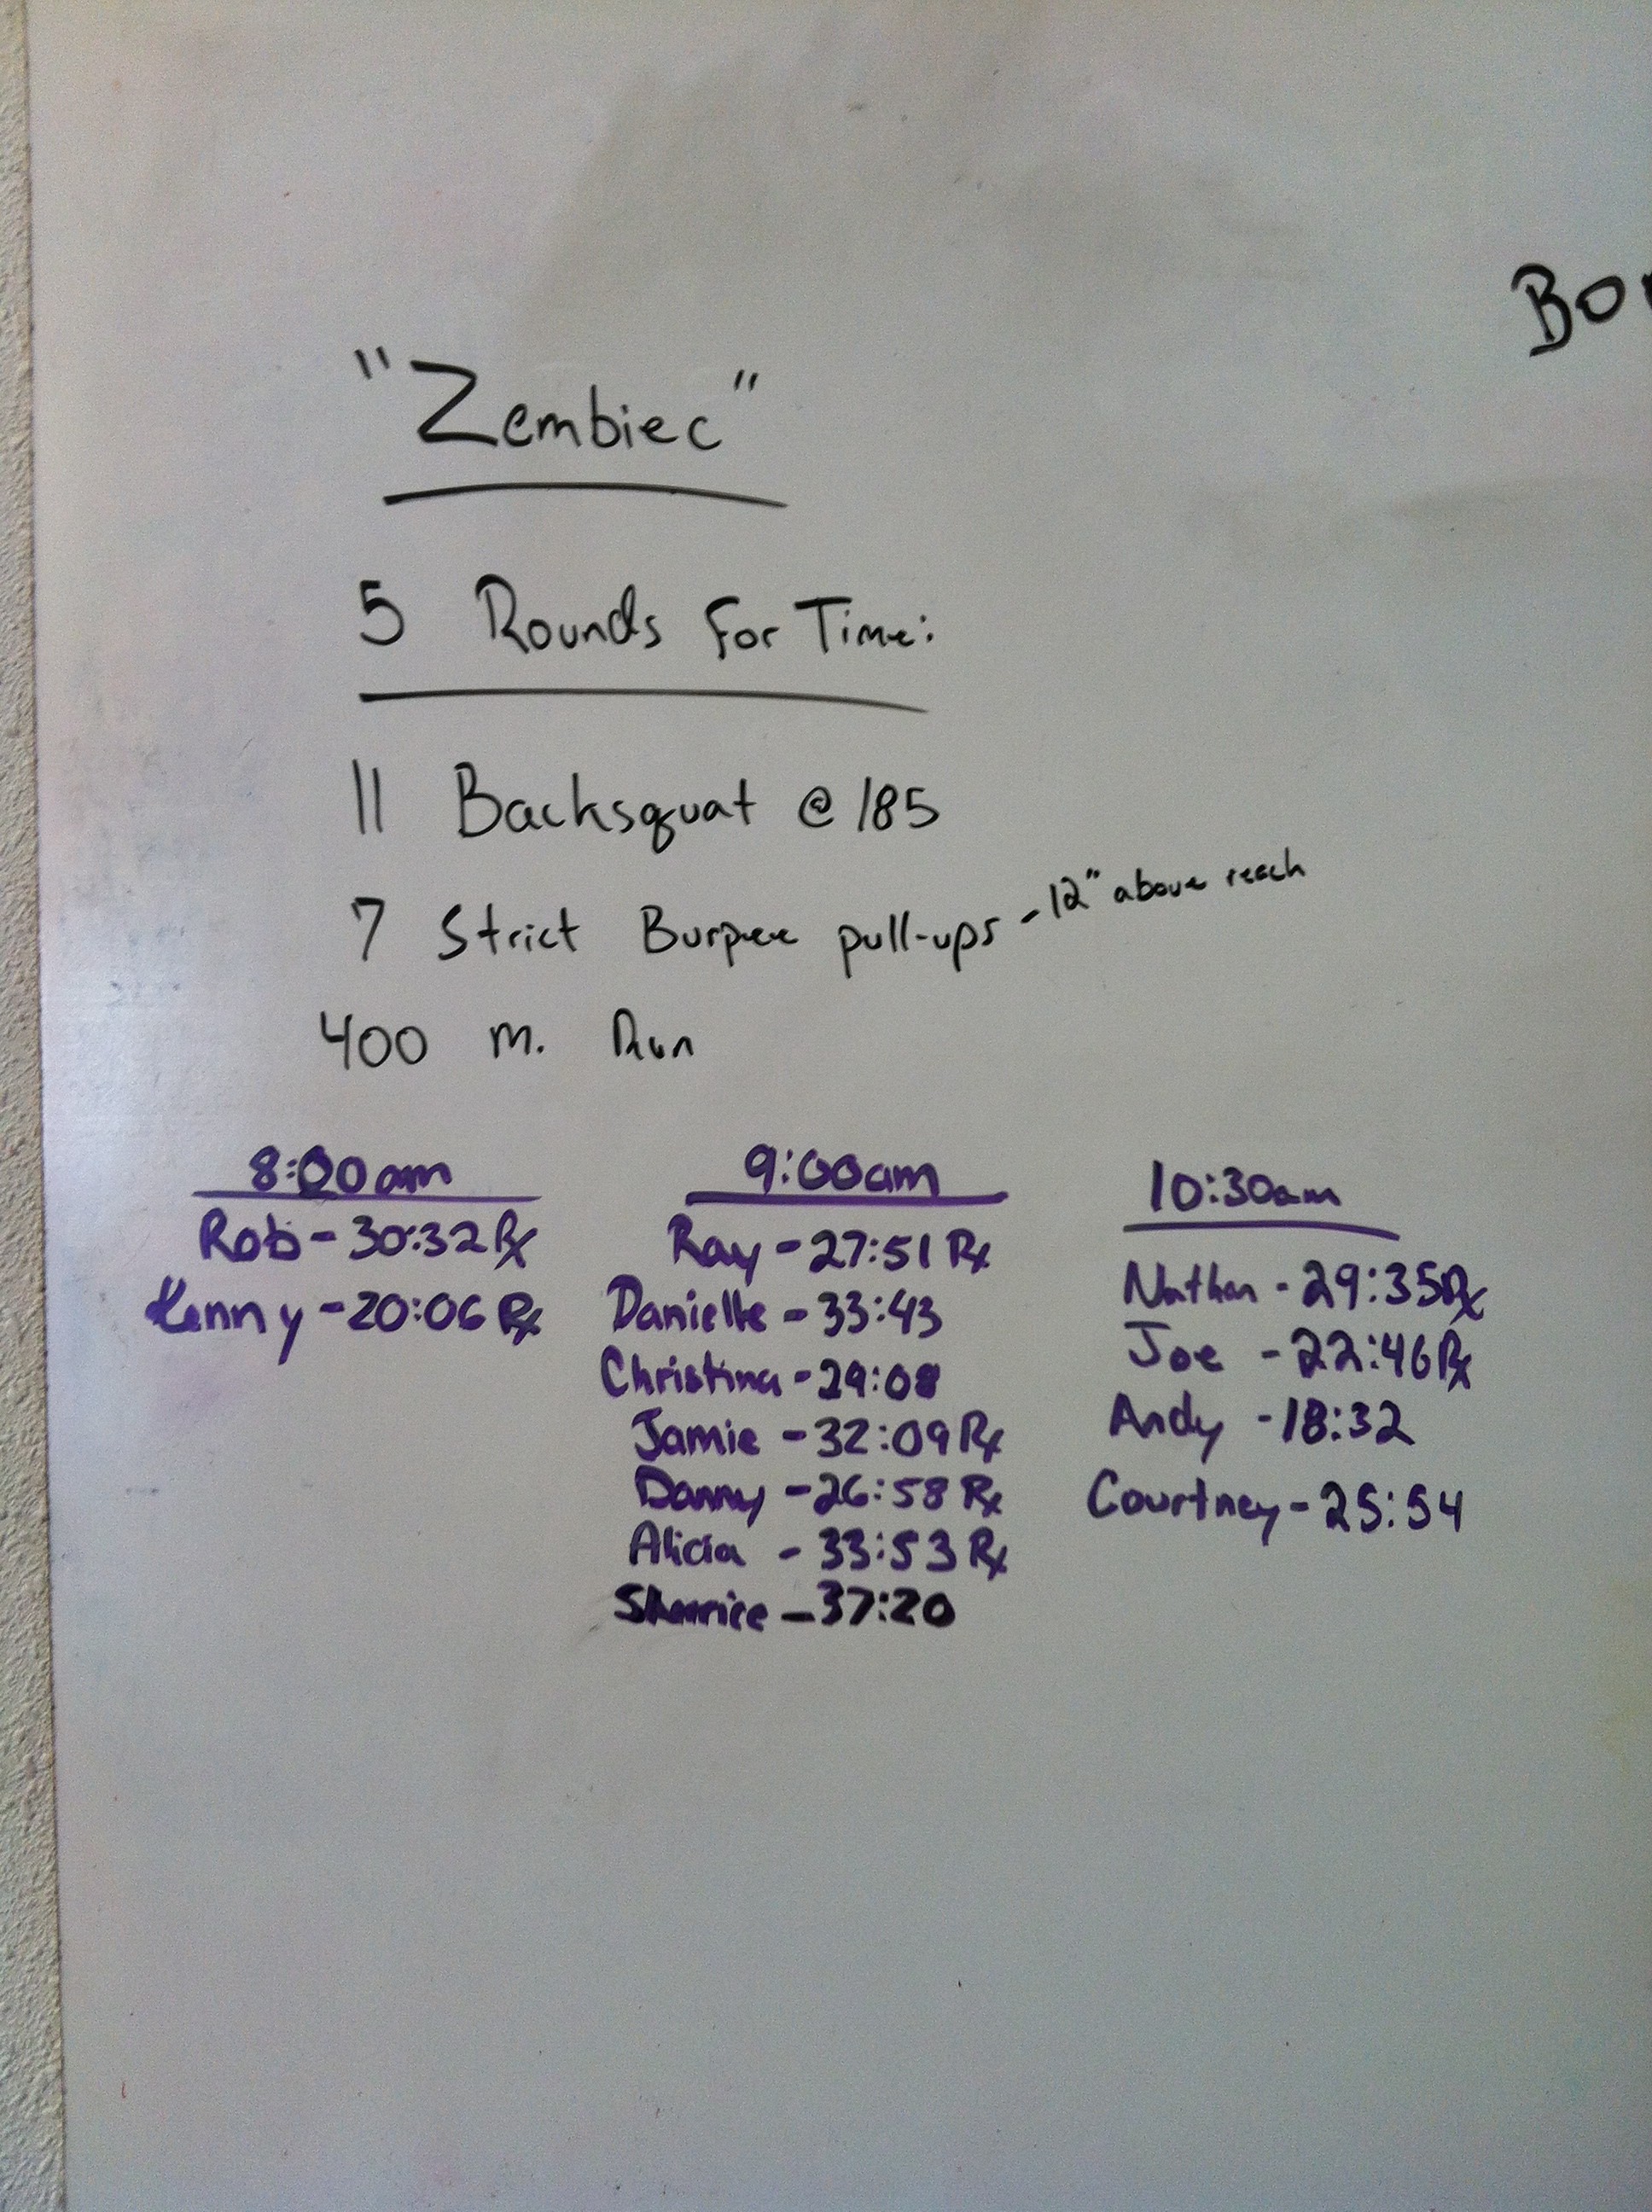 "Zembiec"
5 Rounds For Time:
11 Backsquat @ 185
7 Strict Burpee pull-ups - 12" above reach
400 m. Run
8:00am
Rob - 30:32 Rx
Kenny - 20:06 Rx
9:00am
Ray - 27:51 Rx
Danielle - 33:43
Christina - 29:08
Jamie - 32:09 Rx
Danny - 26:58 Rx
Alicia - 33:53 Rx
- 37:20
10:30am
Nathan - 29:35 Rx
Joe - 22:46 Rx
Andy - 18:32
Courtney - 25:54